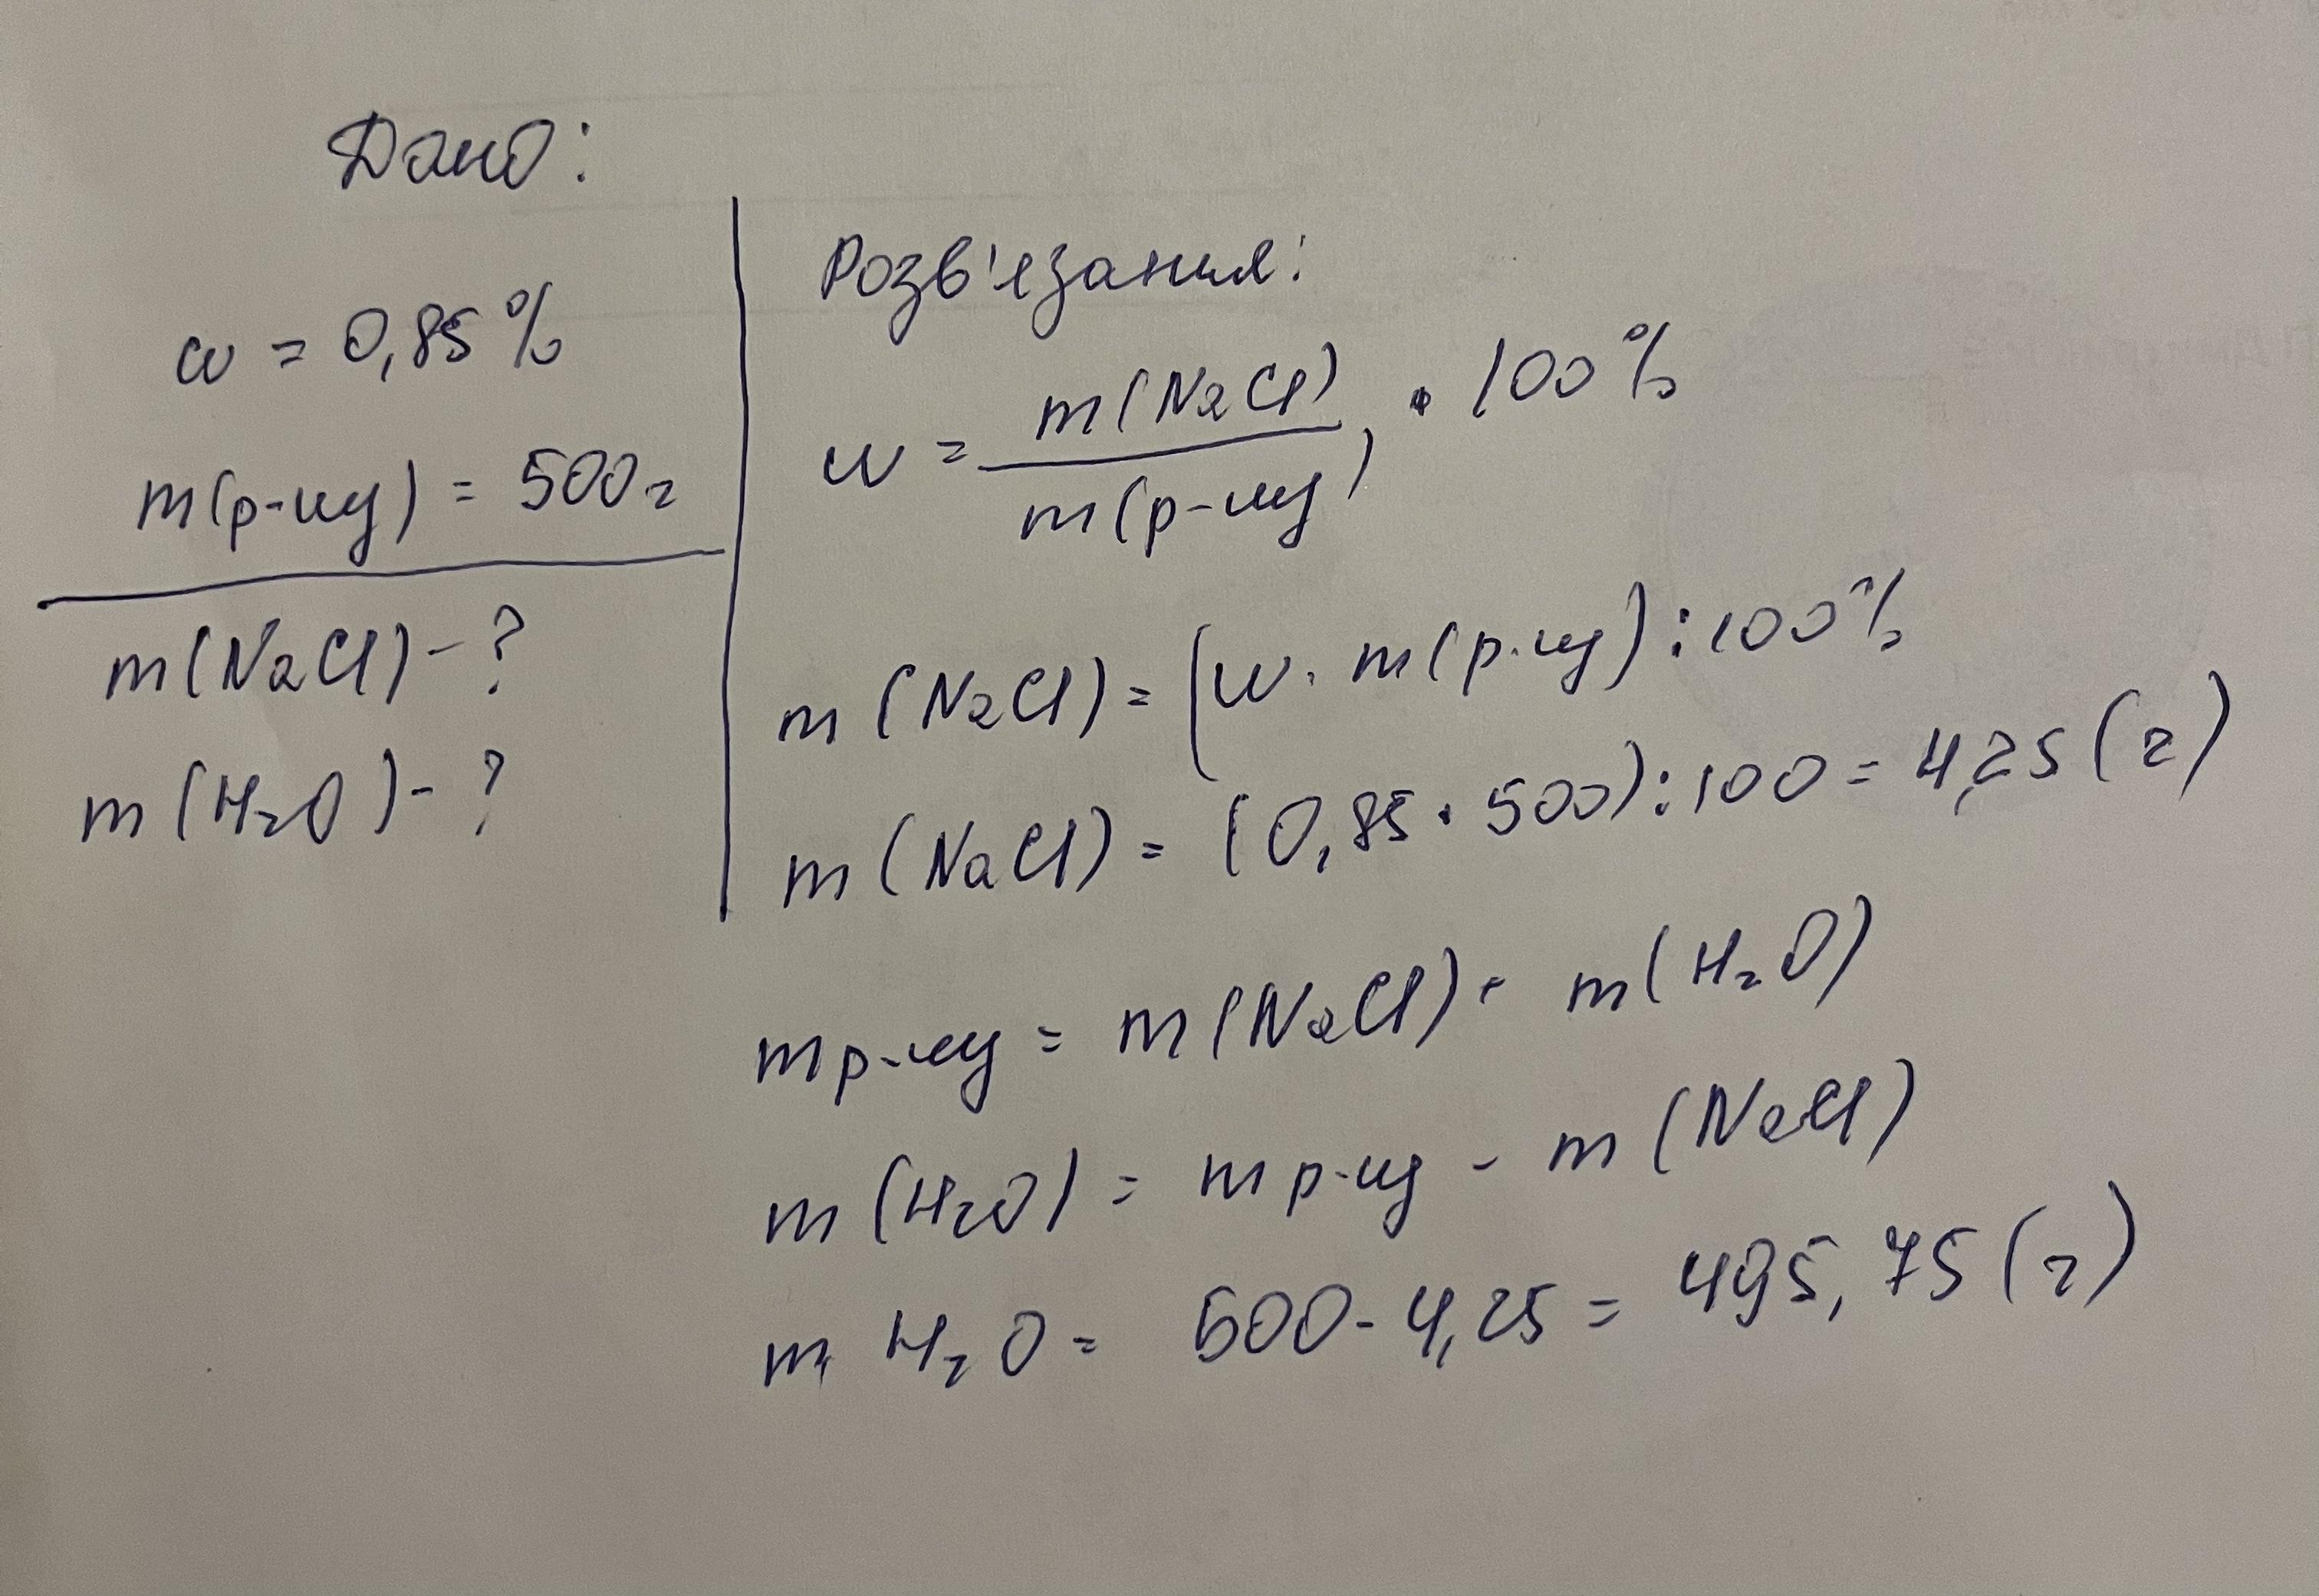 Дано:
w = 0,85%
m(р-ну) = 500г
m(NaCl) - ?
m(H₂O) - ?
Розв'язання:
w = m(NaCl) / m(р-ну) · 100%
m(NaCl) = (w · m(р-ну) : 100%
m(NaCl) = (0,85 · 500) : 100 = 4,25 (г)
mр-ну = m(NaCl) + m(H₂O)
m(H₂O) = mр-ну - m(NaCl)
m H₂O = 500 - 4,25 = 495,75 (г)